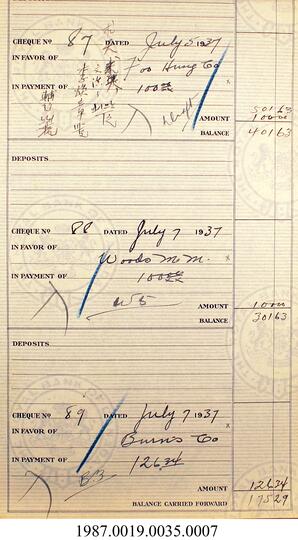 CHEQUE Nº 87 DATED July 5 1937
IN FAVOR OF Foo Hung Co
IN PAYMENT OF 100 00/xx x
50163
AMOUNT 10000
BALANCE 40163
DEPOSITS
CHEQUE Nº 88 DATED July 7 1937
IN FAVOR OF Woods M.M. x
IN PAYMENT OF 100 00/xx
W5
AMOUNT 10000
BALANCE 30163
DEPOSITS
CHEQUE Nº 89 DATED July 7 1937
IN FAVOR OF Burns Co x
IN PAYMENT OF 126.34
B3
AMOUNT 12634
BALANCE CARRIED FORWARD 17529
1987.0019.0035.0007